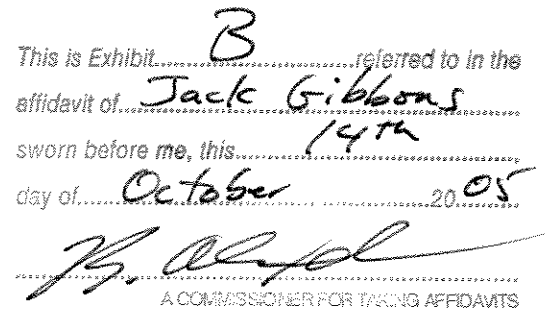 This is Exhibit B referred to in the
affidavit of Jack Gibbons
sworn before me, this 14th
day of October 20 05
A COMMISSIONER FOR TAKING AFFIDAVITS